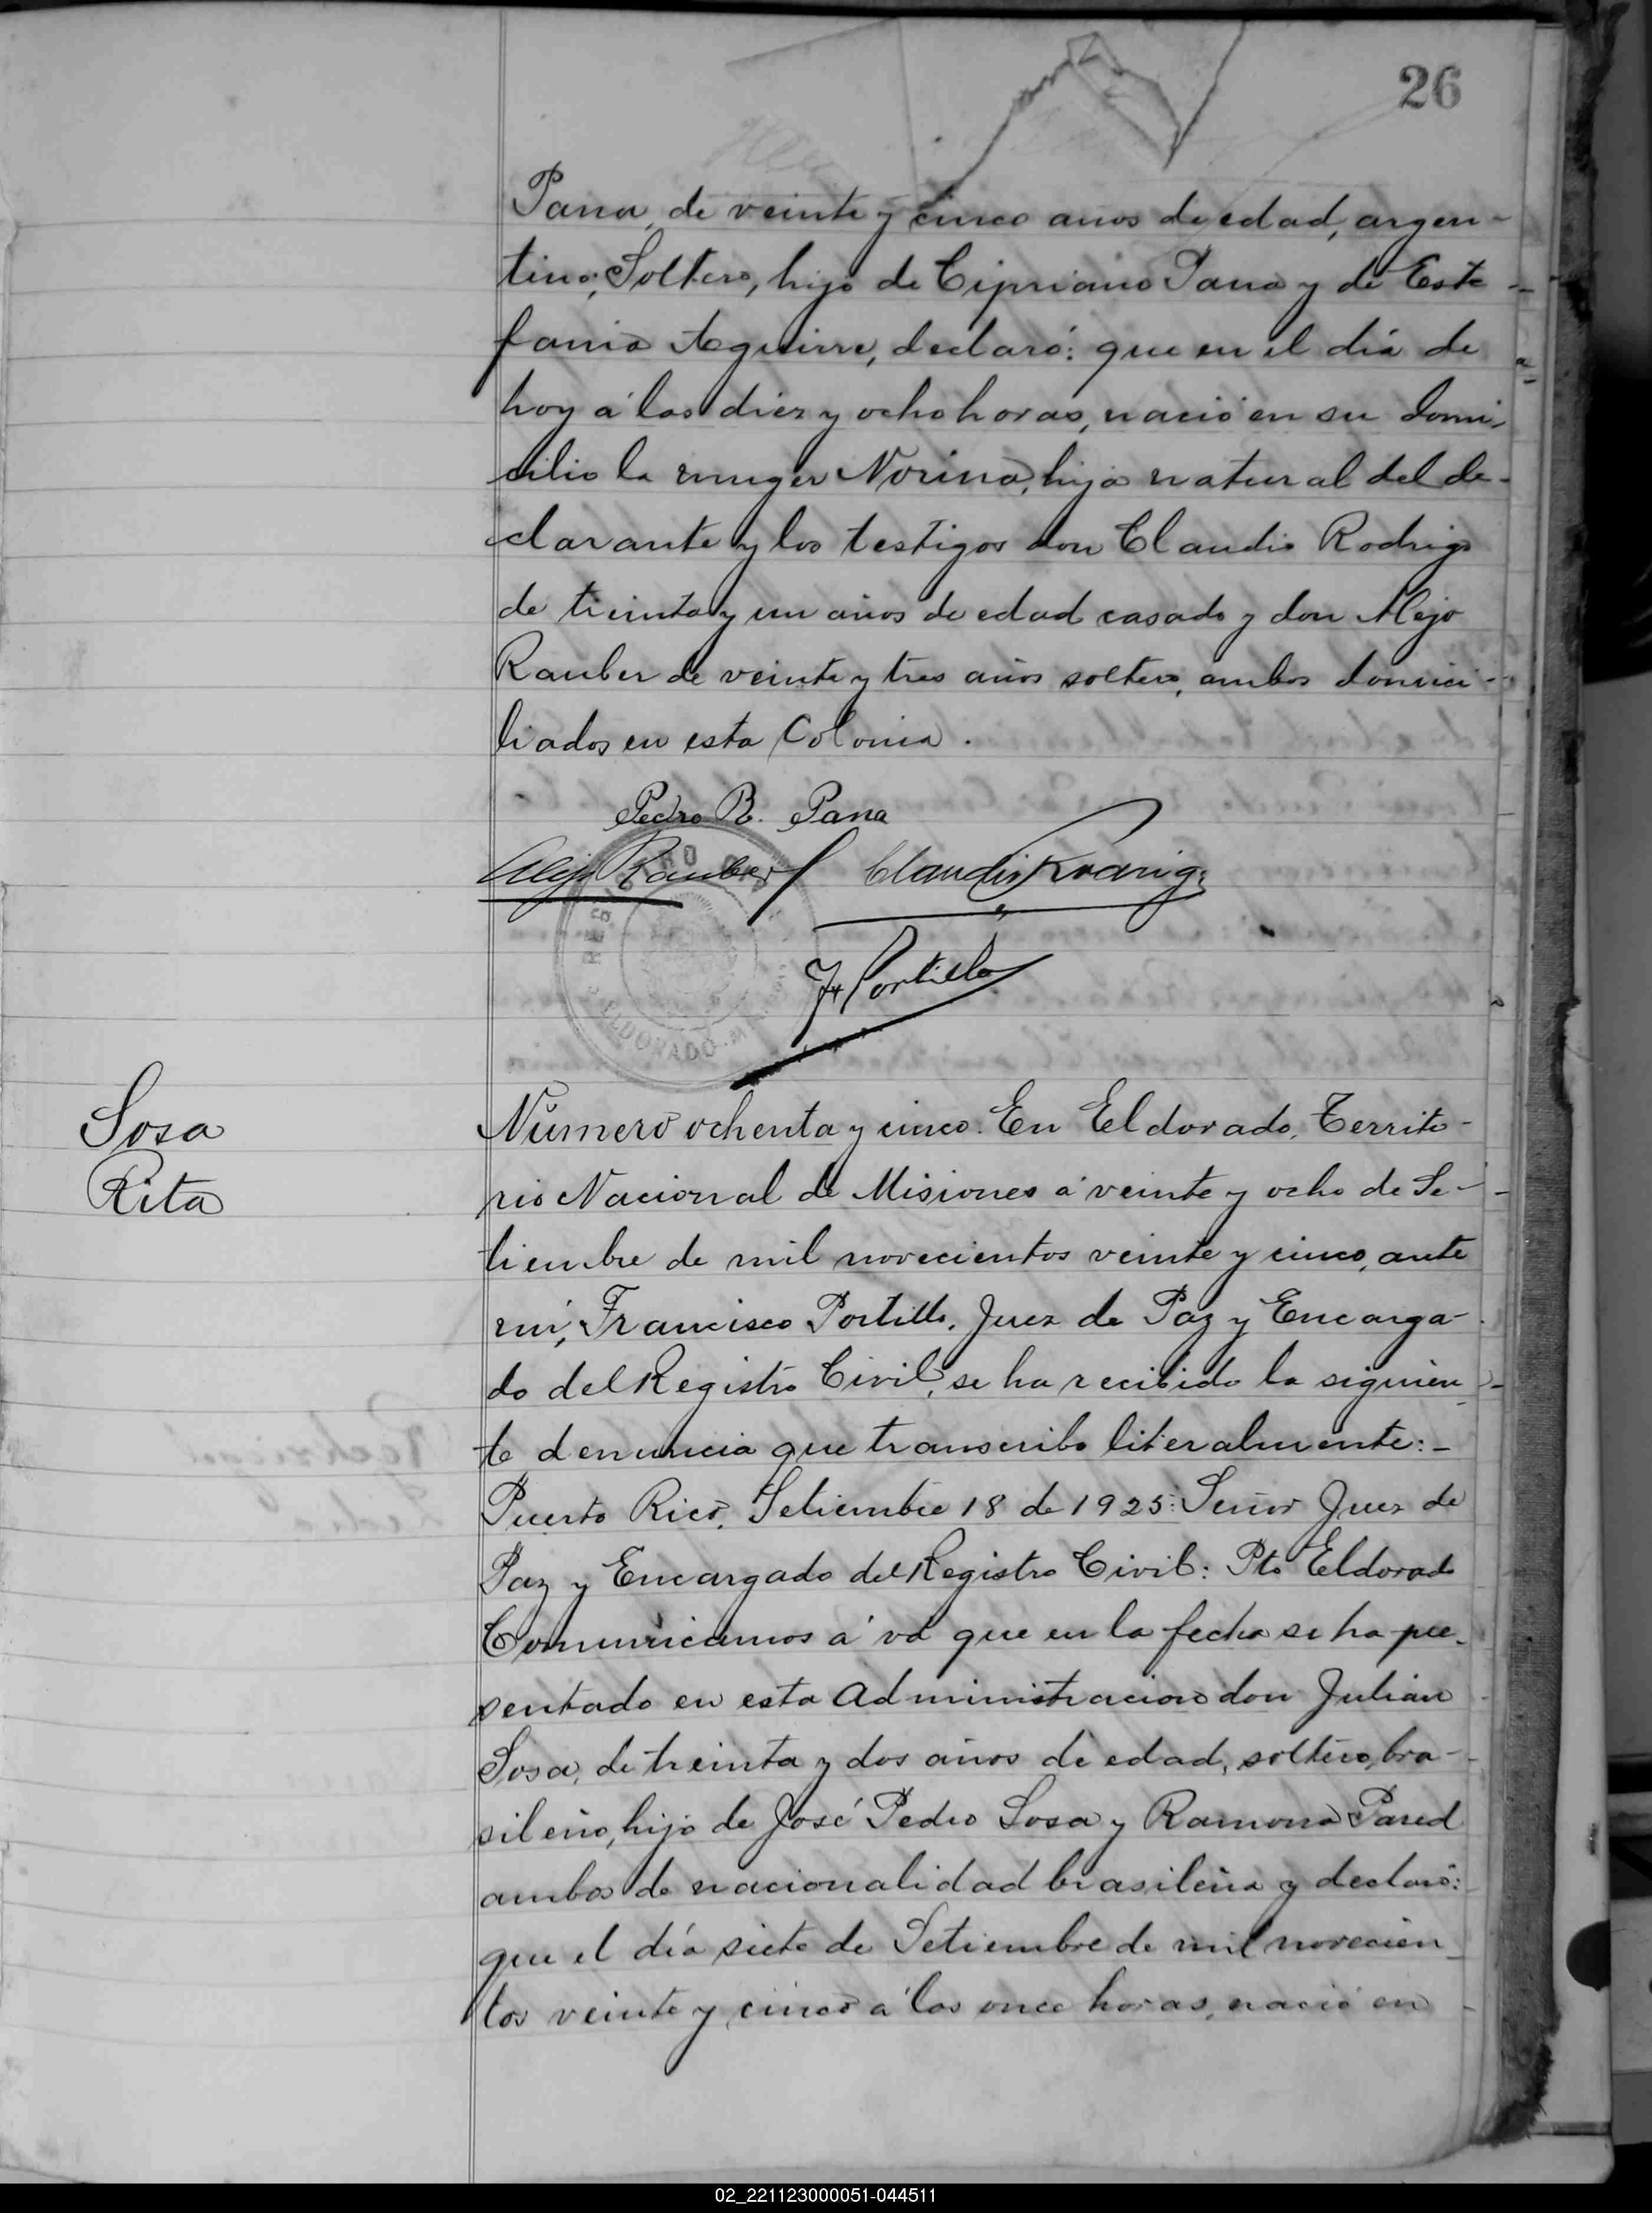 26
Pana, de veinte y cinco años de edad, argen-
tino, Soltero, hijo de Cipriano Pana y de Este-
fania Aguirre, declaró: que en el día de
hoy á las diez y ocho horas, nació en su domi-
cilio la muger Norina, hija natural del de-
clarante y los testigos don Claudio Rodrigo
de treinta y un años de edad casado y don Alejo
Rauber de veinte y tres años soltero, ambos domici-
liados en esta Colonia.
Pedro B. Pana
Alejo Rauber Claudio Rodrigo
REGISTRO CIVIL
F Portillo
ELDORADO
Sosa
Rita
Número ochenta y cinco. En Eldorado, Territo-
rio Nacional de Misiones á veinte y ocho de Se-
tiembre de mil novecientos veinte y cinco, ante
mí, Francisco Portillo, Juez de Paz y Encarga-
do del Registro Civil, se ha recibido la siguien-
te denuncia que transcribo literalmente:-
Puerto Rico, Setiembre 18 de 1925: Señor Juez de
Paz y Encargado del Registro Civil: Pto Eldorado
Comunicamos á vd que en la fecha se ha pre-
sentado en esta Administracion don Julian
Sosa, de treinta y dos años de edad, soltero, bra-
sileño, hijo de José Pedro Sosa y Ramona Pared
ambos de nacionalidad brasileña y declaró:
que el día siete de Setiembre de mil novecien-
tos veinte y cinco á las once horas, nació en
02_221123000051-044511